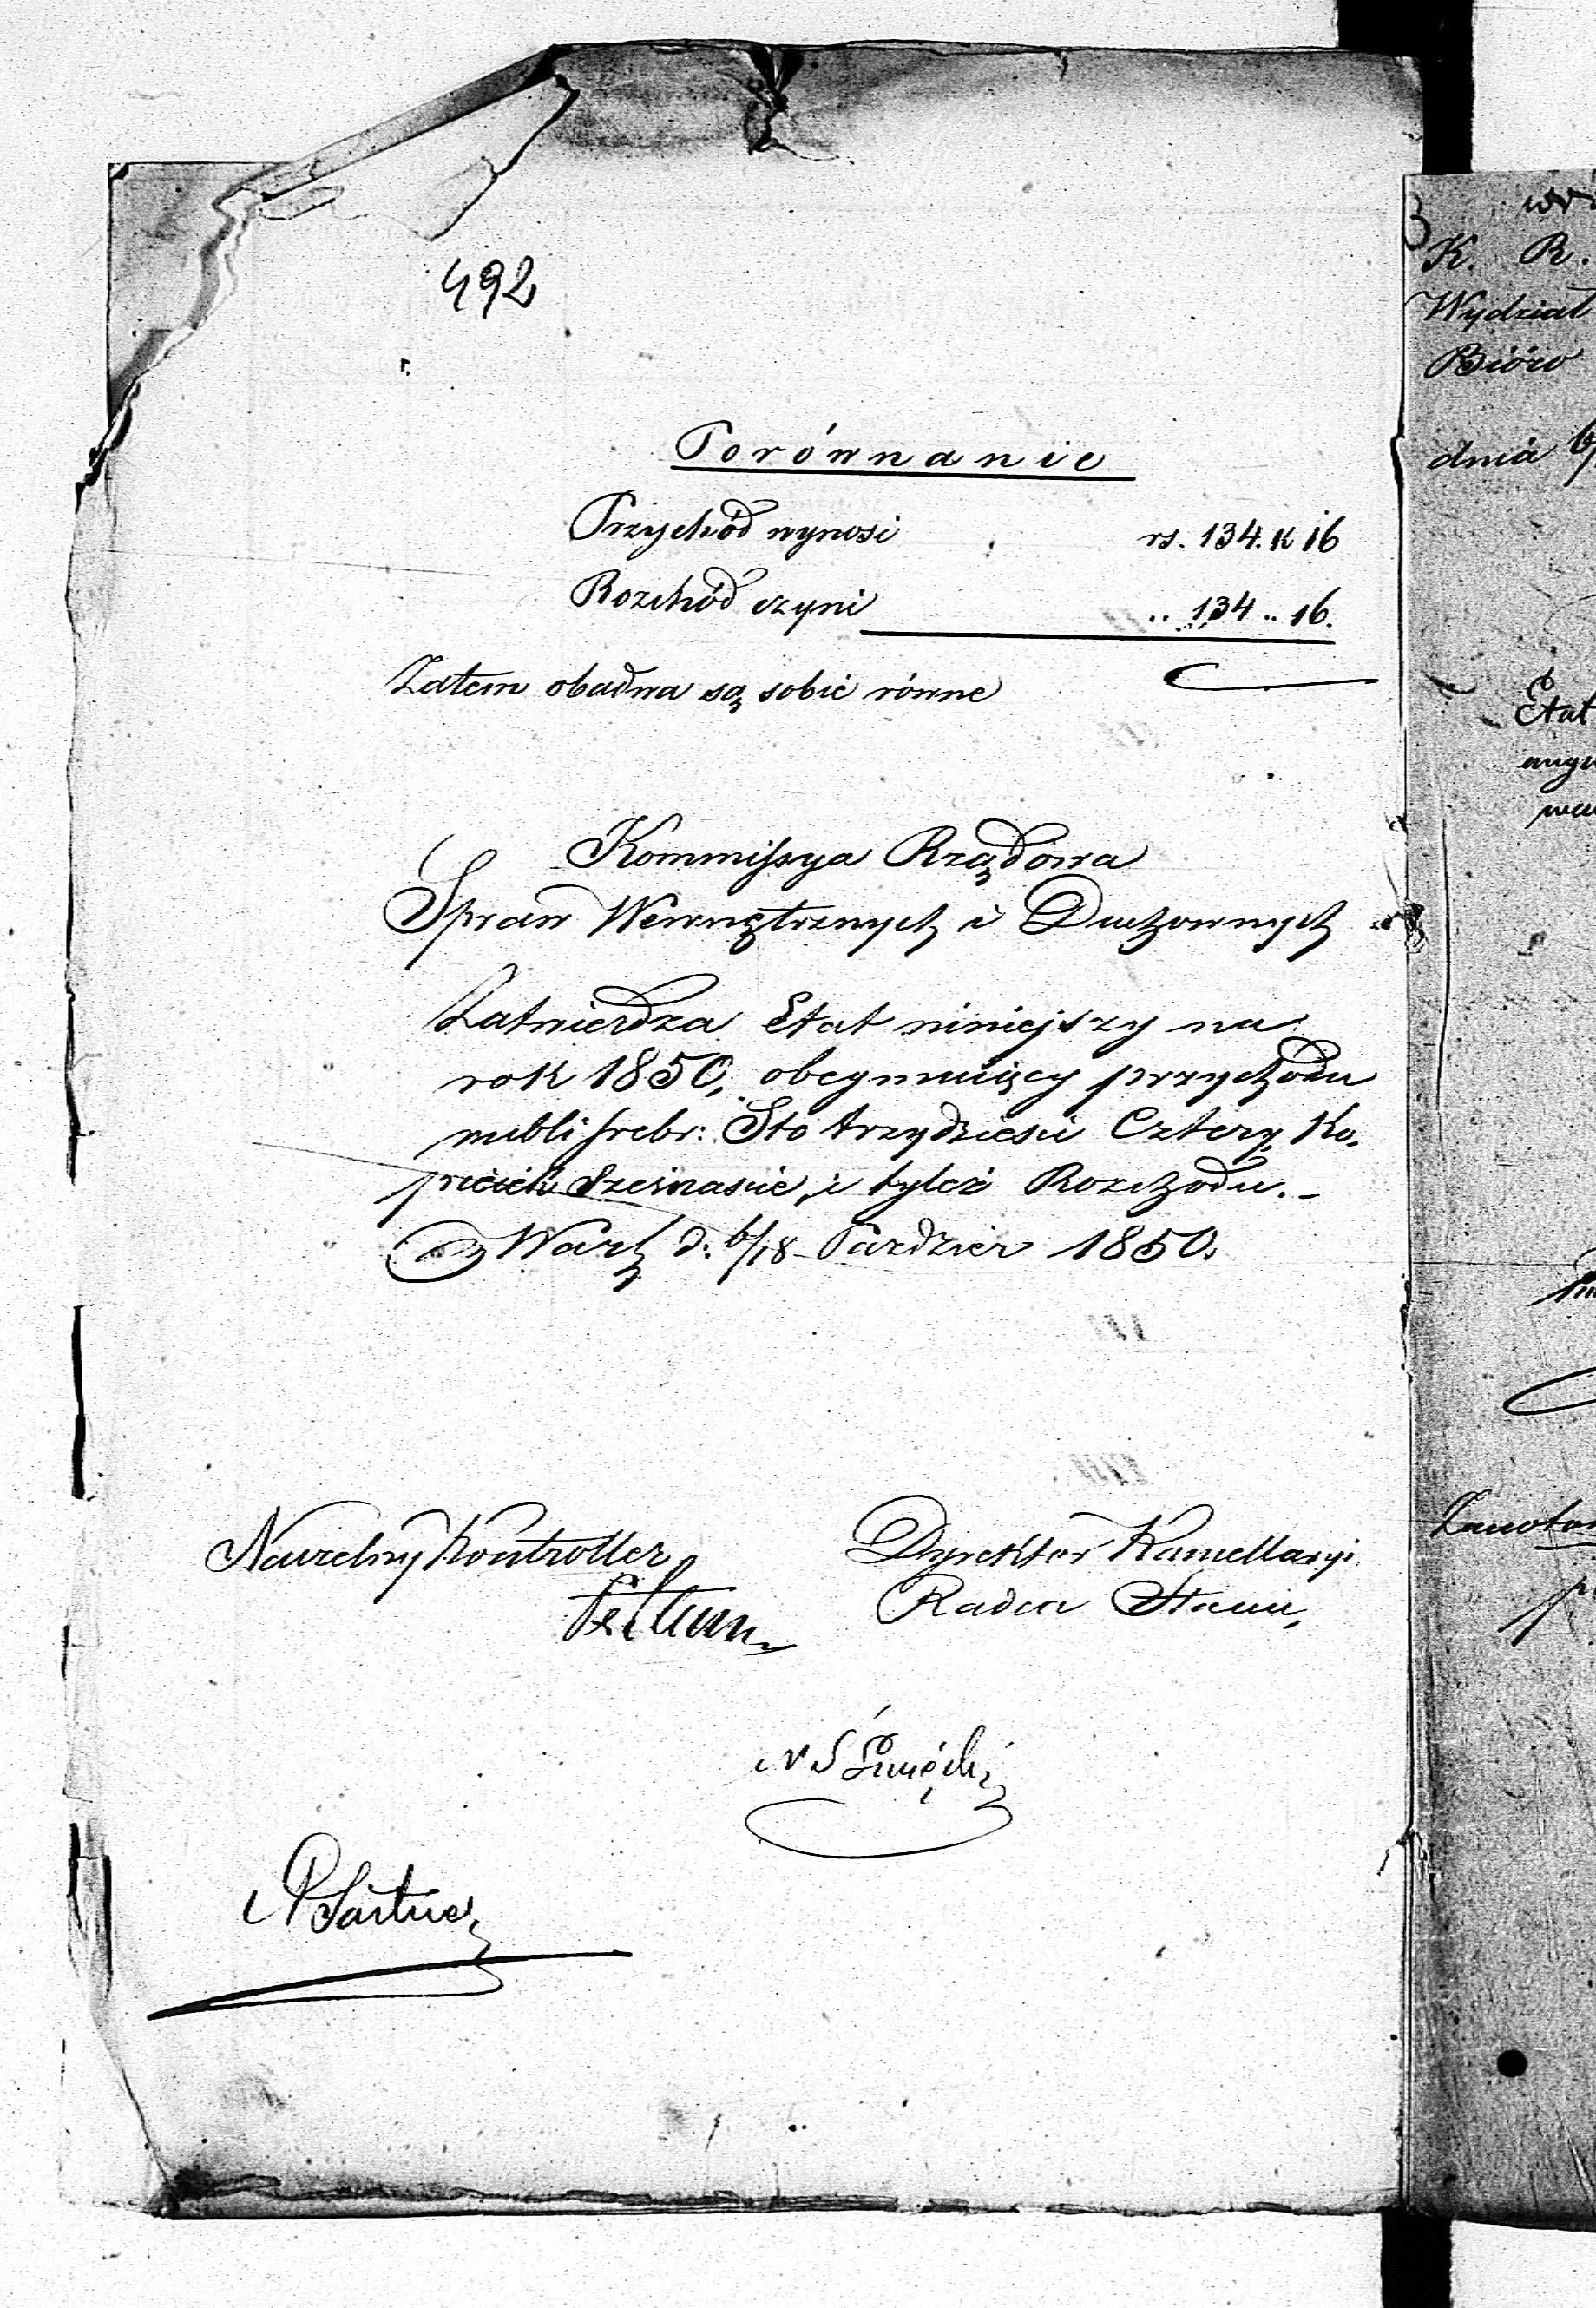 492
Porównanie
Przychód wynosi rs. 134. k 16
Rozchód czyni .. 134 .. 16.
Zatem obadwa są sobie równe
Kommissya Rządowa
Spraw Wewnętrznych i Duchownych
Zatwierdza Etat niniejszy na
rok 1850, obeymuiący przychodu
rubli srebr: Sto trzydzieści Cztery, Ko,
pieiek Szesnaście, i tyleż Rozchodu. -
w Warsz d: 6/18 Paździer 1850.
Naczelny Kontroller
Dyrektor Kancellaryi
Radca Stanu,
K. R.
Wydział
Bióro
dnia 6/
Etat